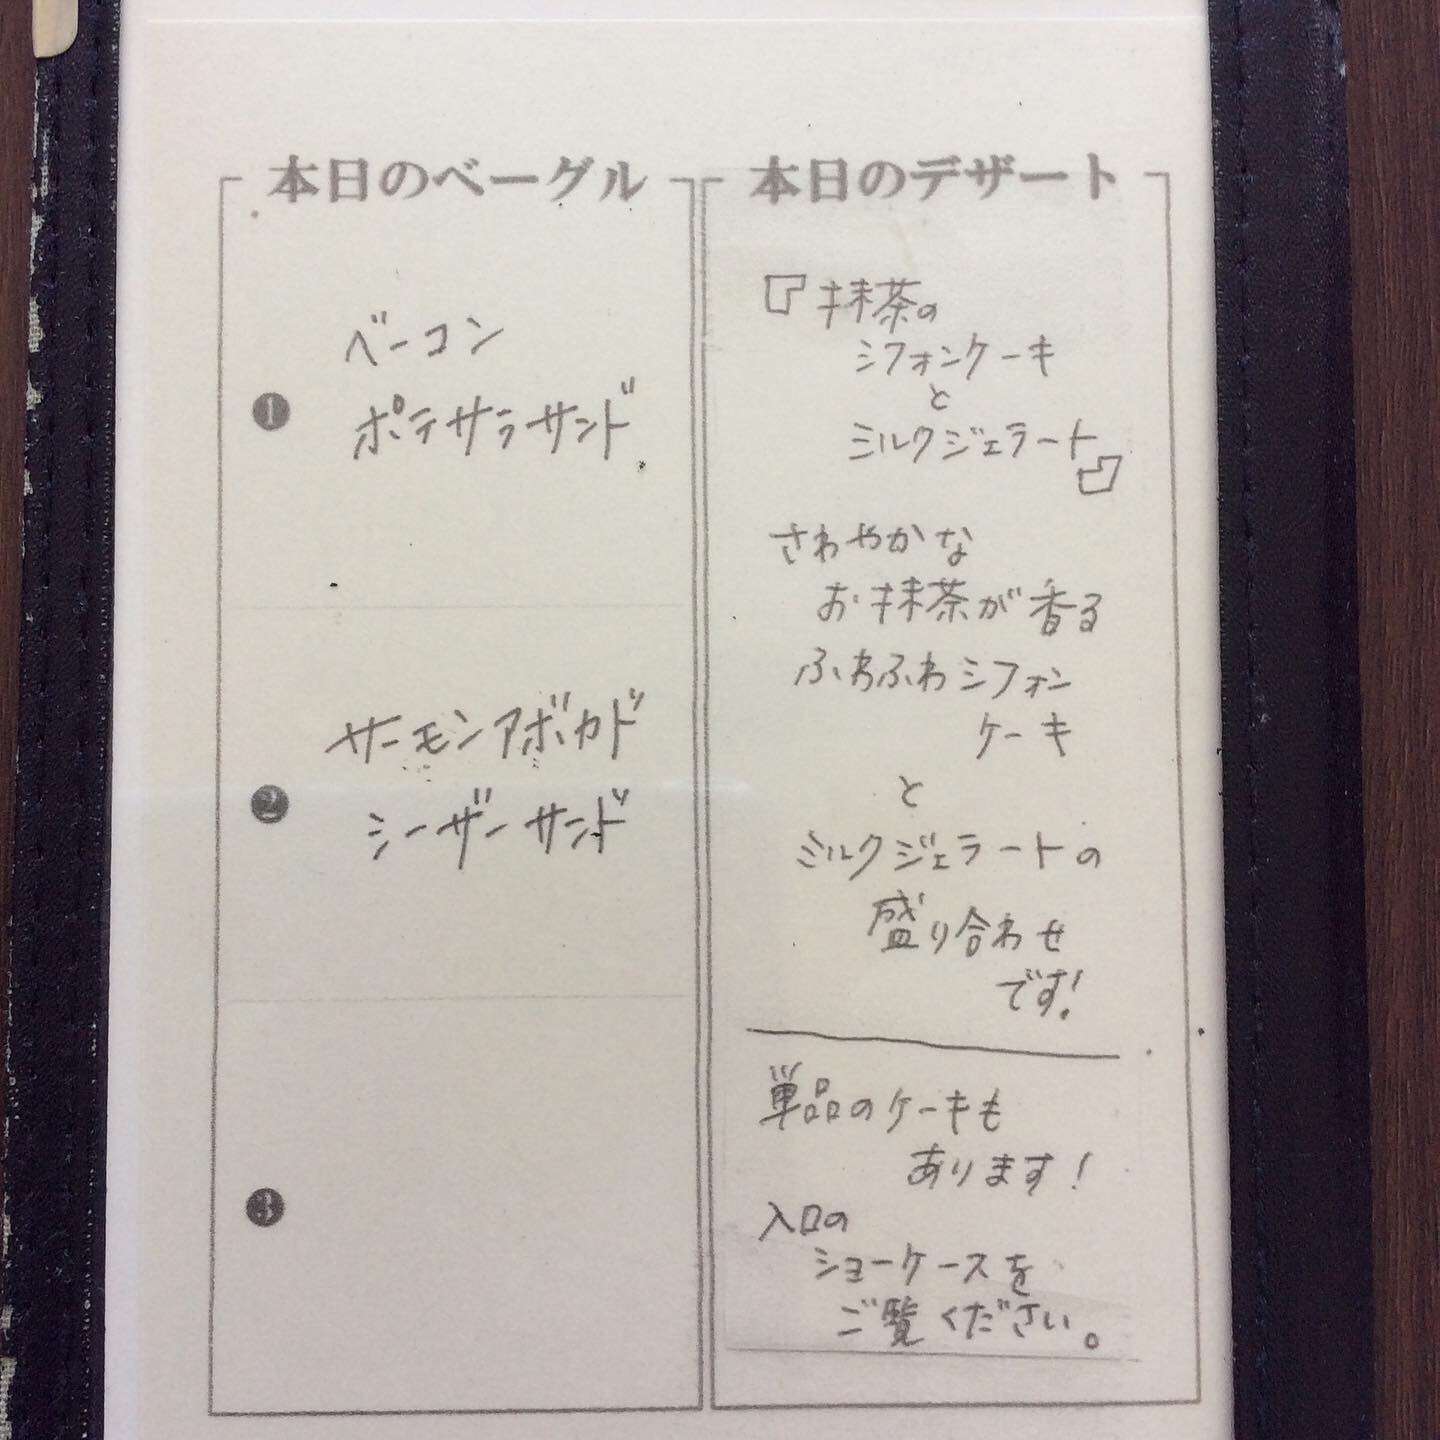 本日のベーグル
❶
ベーコン
ポテサラサンド
❷
サーモンアボカド
シーザーサンド
❸
本日のデザート
『抹茶の
シフォンケーキ
と
ミルクジェラート』
さわやかな
お抹茶が香る
ふわふわシフォン
ケーキ
と
ミルクジェラートの
盛り合わせ
です!
単品のケーキも
あります!
入口の
ショーケースを
ご覧ください。